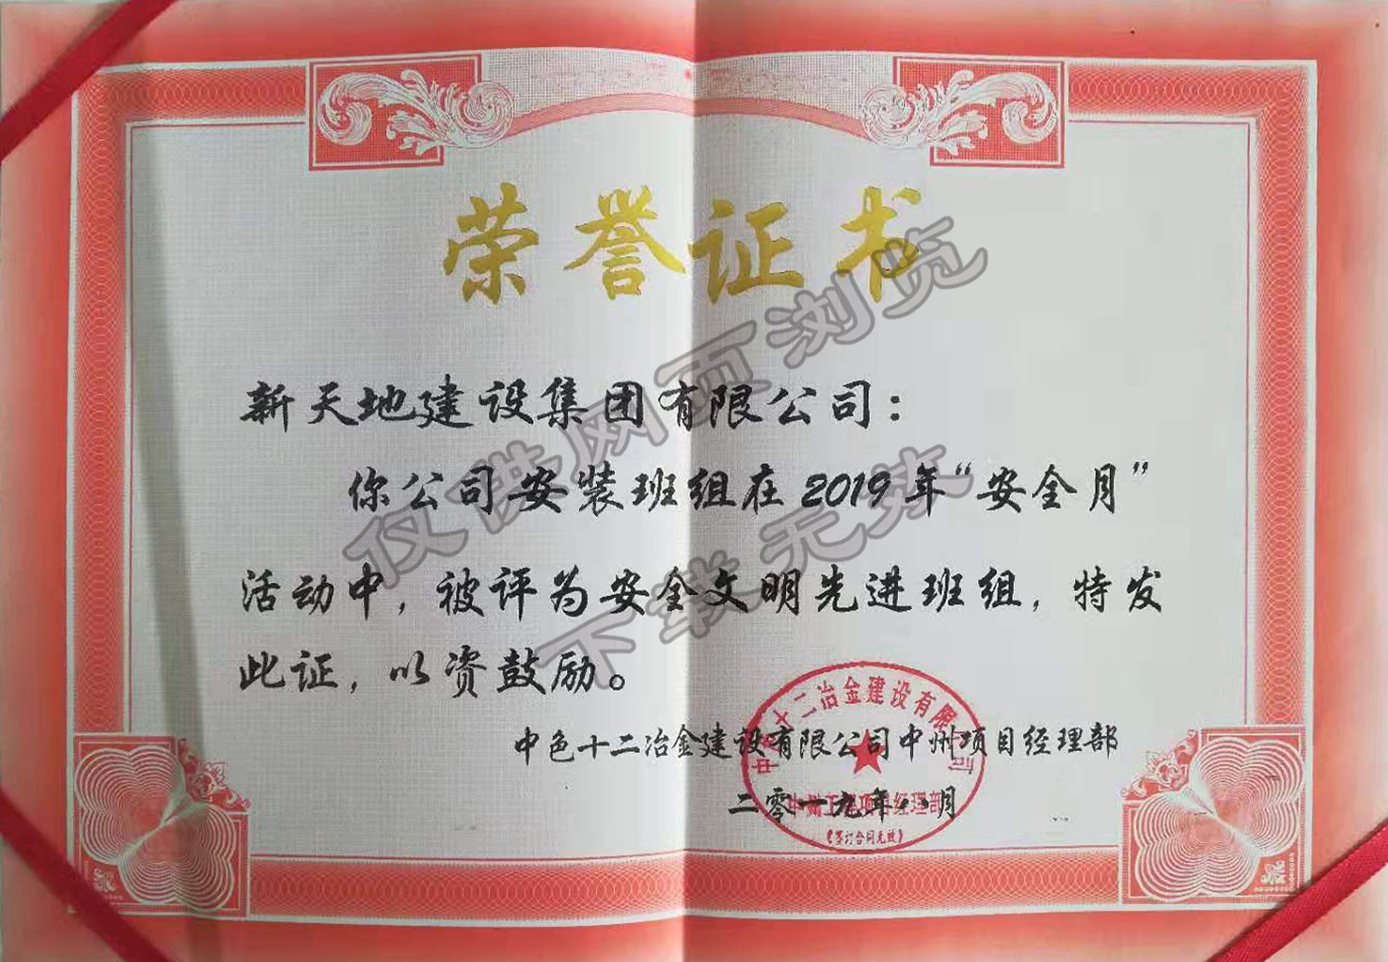 荣誉证书
新天地建设集团有限公司：
你公司安装班组在2019年“安全月”
活动中，被评为安全文明先进班组，特发
此证，以资鼓励。
中色十二冶金建设有限公司中州项目经理部
二零一九年八月
中色十二冶金建设有限公司
中州工程项目经理部
（签订合同无效）
仅供网页浏览
下载无效